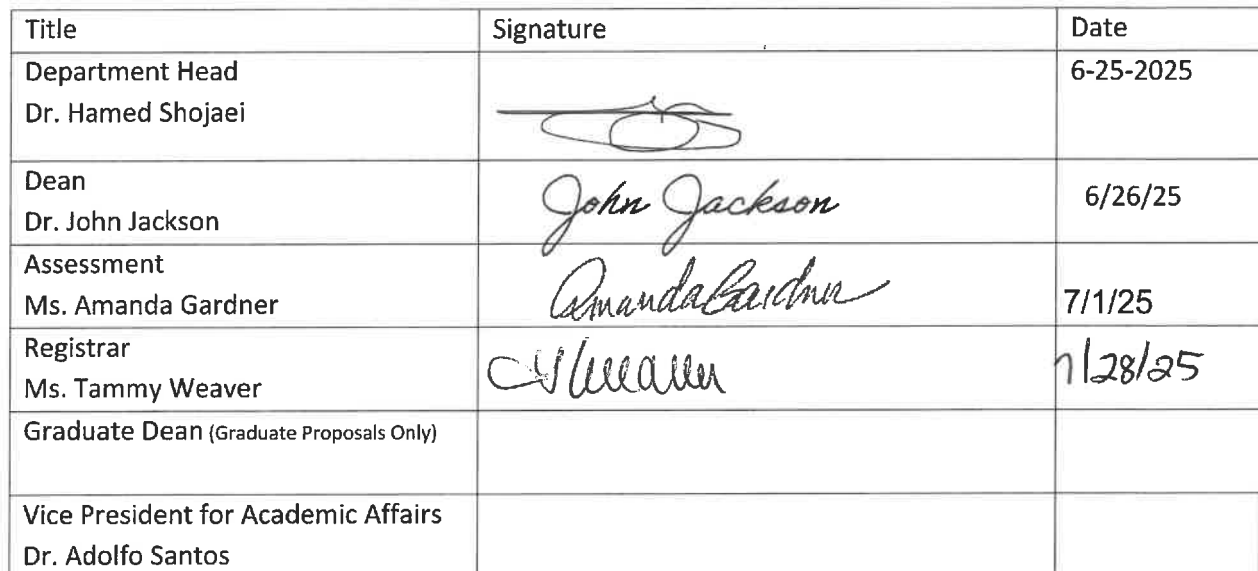 Title Signature Date
Department Head 6-25-2025
Dr. Hamed Shojaei
Dean
Dr. John Jackson John Jackson 6/26/25
Assessment
Ms. Amanda Gardner Amanda Gardner 7/1/25
Registrar
Ms. Tammy Weaver 7/28/25
Graduate Dean (Graduate Proposals Only)
Vice President for Academic Affairs
Dr. Adolfo Santos